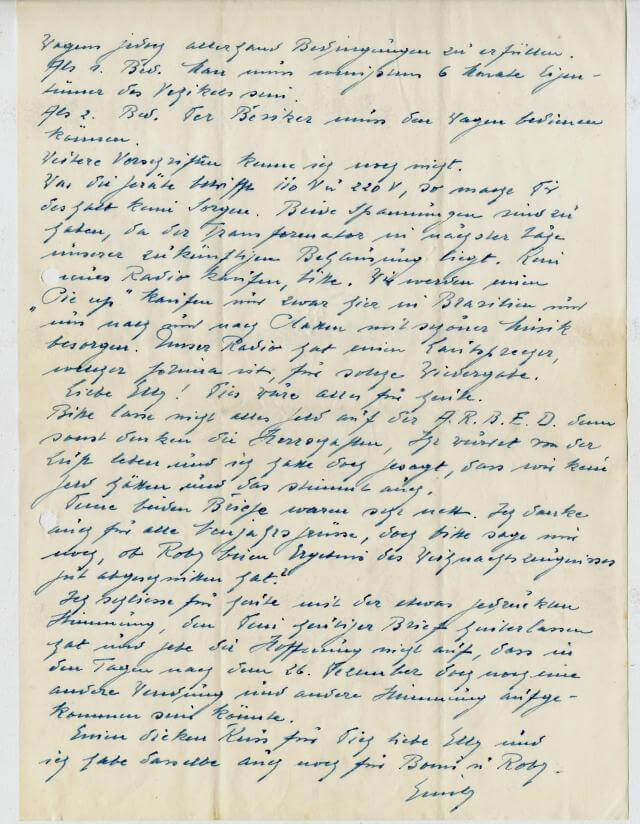 Wagens jedoch allerhand Bedingungen zu erfüllen.
Als 1. Bed. Man muss wenigstens 6 Monate Eigen-
tümer des Vehikels sein.
Als 2. Bed. Der Besitzer muss den Wagen bedienen
können.
Weitere Vorschriften kenne ich noch nicht.
Was die Geräte betrifft 110 V u 220 V, so mache Dir
deshalb keine Sorgen. Beide Spannungen sind zu
haben, da der Transformator in nächster Lage
unserer zukünftigen Behausung liegt. Kein
neues Radio kaufen, bitte. Wir werden einen
„Pic up" kaufen und zwar hier in Brasilien und
uns nach und nach Platten mit schöner Musik
besorgen. Unser Radio hat einen Lautsprecher,
welcher formina ist, für solche Wiedergabe.
Liebe Elly! Dies wäre alles für heute.
Bitte lasse nicht alles Geld auf der A.R.B.E.D. denn
sonst denken die Herrschaften, Ihr würdet von der
Luft leben und ich hatte doch gesagt, dass wir kein
Geld hätten und das stimmt auch.
Deine beiden Briefe waren sehr nett. Ich danke
auch für alle Neujahrsgrüsse, doch bitte sage mir
noch, ob Roby beim Ergebnis des Weihnachtszeugnisses
gut abgeschnitten hat?
Ich schliesse für heute mit der etwas gedrückten
Stimmung, den Dein heutiger Brief hinterlassen
hat und gebe die Hoffnung nicht auf, dass in
den Tagen nach dem 26. Dezember doch noch eine
andere Wendung und andere Stimmung aufge-
kommen sein könnte.
Einen dicken Kuss für Dich liebe Elly und
ich habe dasselbe auch noch für Bomi u Roby.
Emily